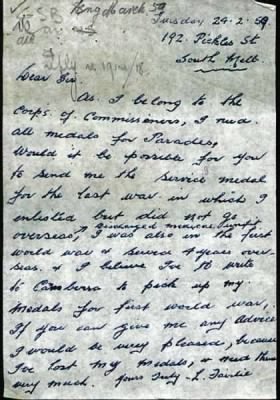 Tuesday 24.2.59.
192. Pickles St
South Melb.
Dear Sir,
As. I belong to the
Corps. of Commissioners, I need
all medals for Parades,
Would it be possible for you
to send me the service medal
for the last war in which I
enlisted but did not go
overseas,
I was also in the first
world war & service 4 years over-
seas. & I believe I've to write
to Canberra to pick up my
medals for first world war,
If you can give me any advice
I would be very pleased, because
I've lost my medals, & need them
very much. Yours Truly L. Fairlie